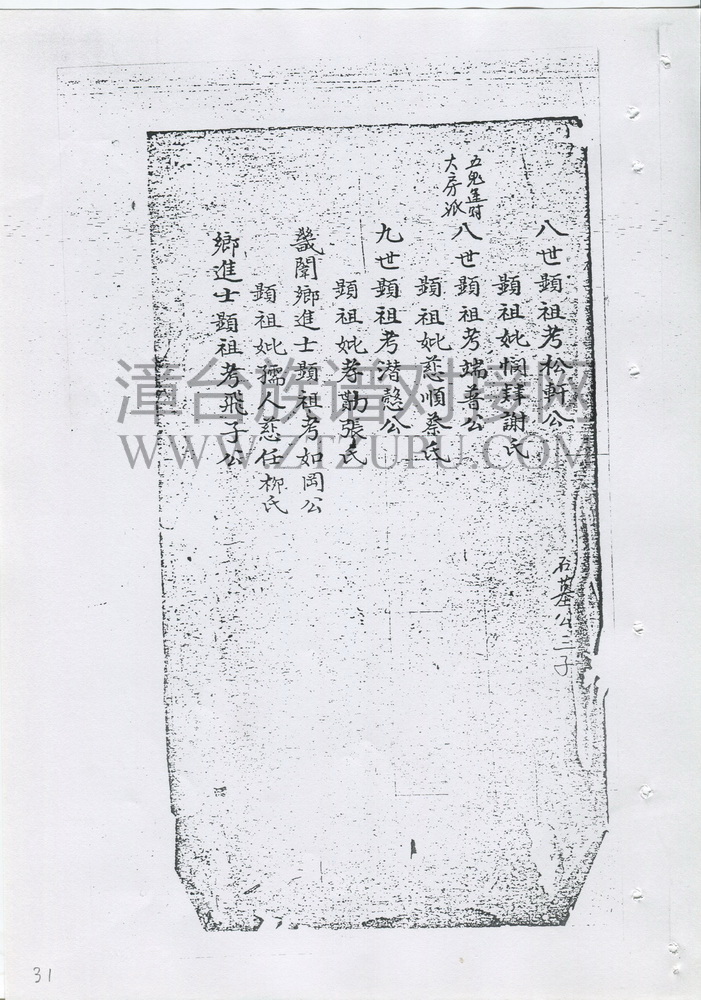 八世顯祖考松軒公
石墓公三子
顯祖妣 謝氏
五鬼
大房派
八世顯祖考端善公
顯祖妣慈順蔡氏
九世顯祖考潛愨公
顯祖妣孝勤張氏
畿闈鄉進士顯祖考如岡公
顯祖妣孺人慈任柳氏
鄉進士顯祖考飛子公
漳台族谱对接网
WWW.ZTZUPU.COM
31